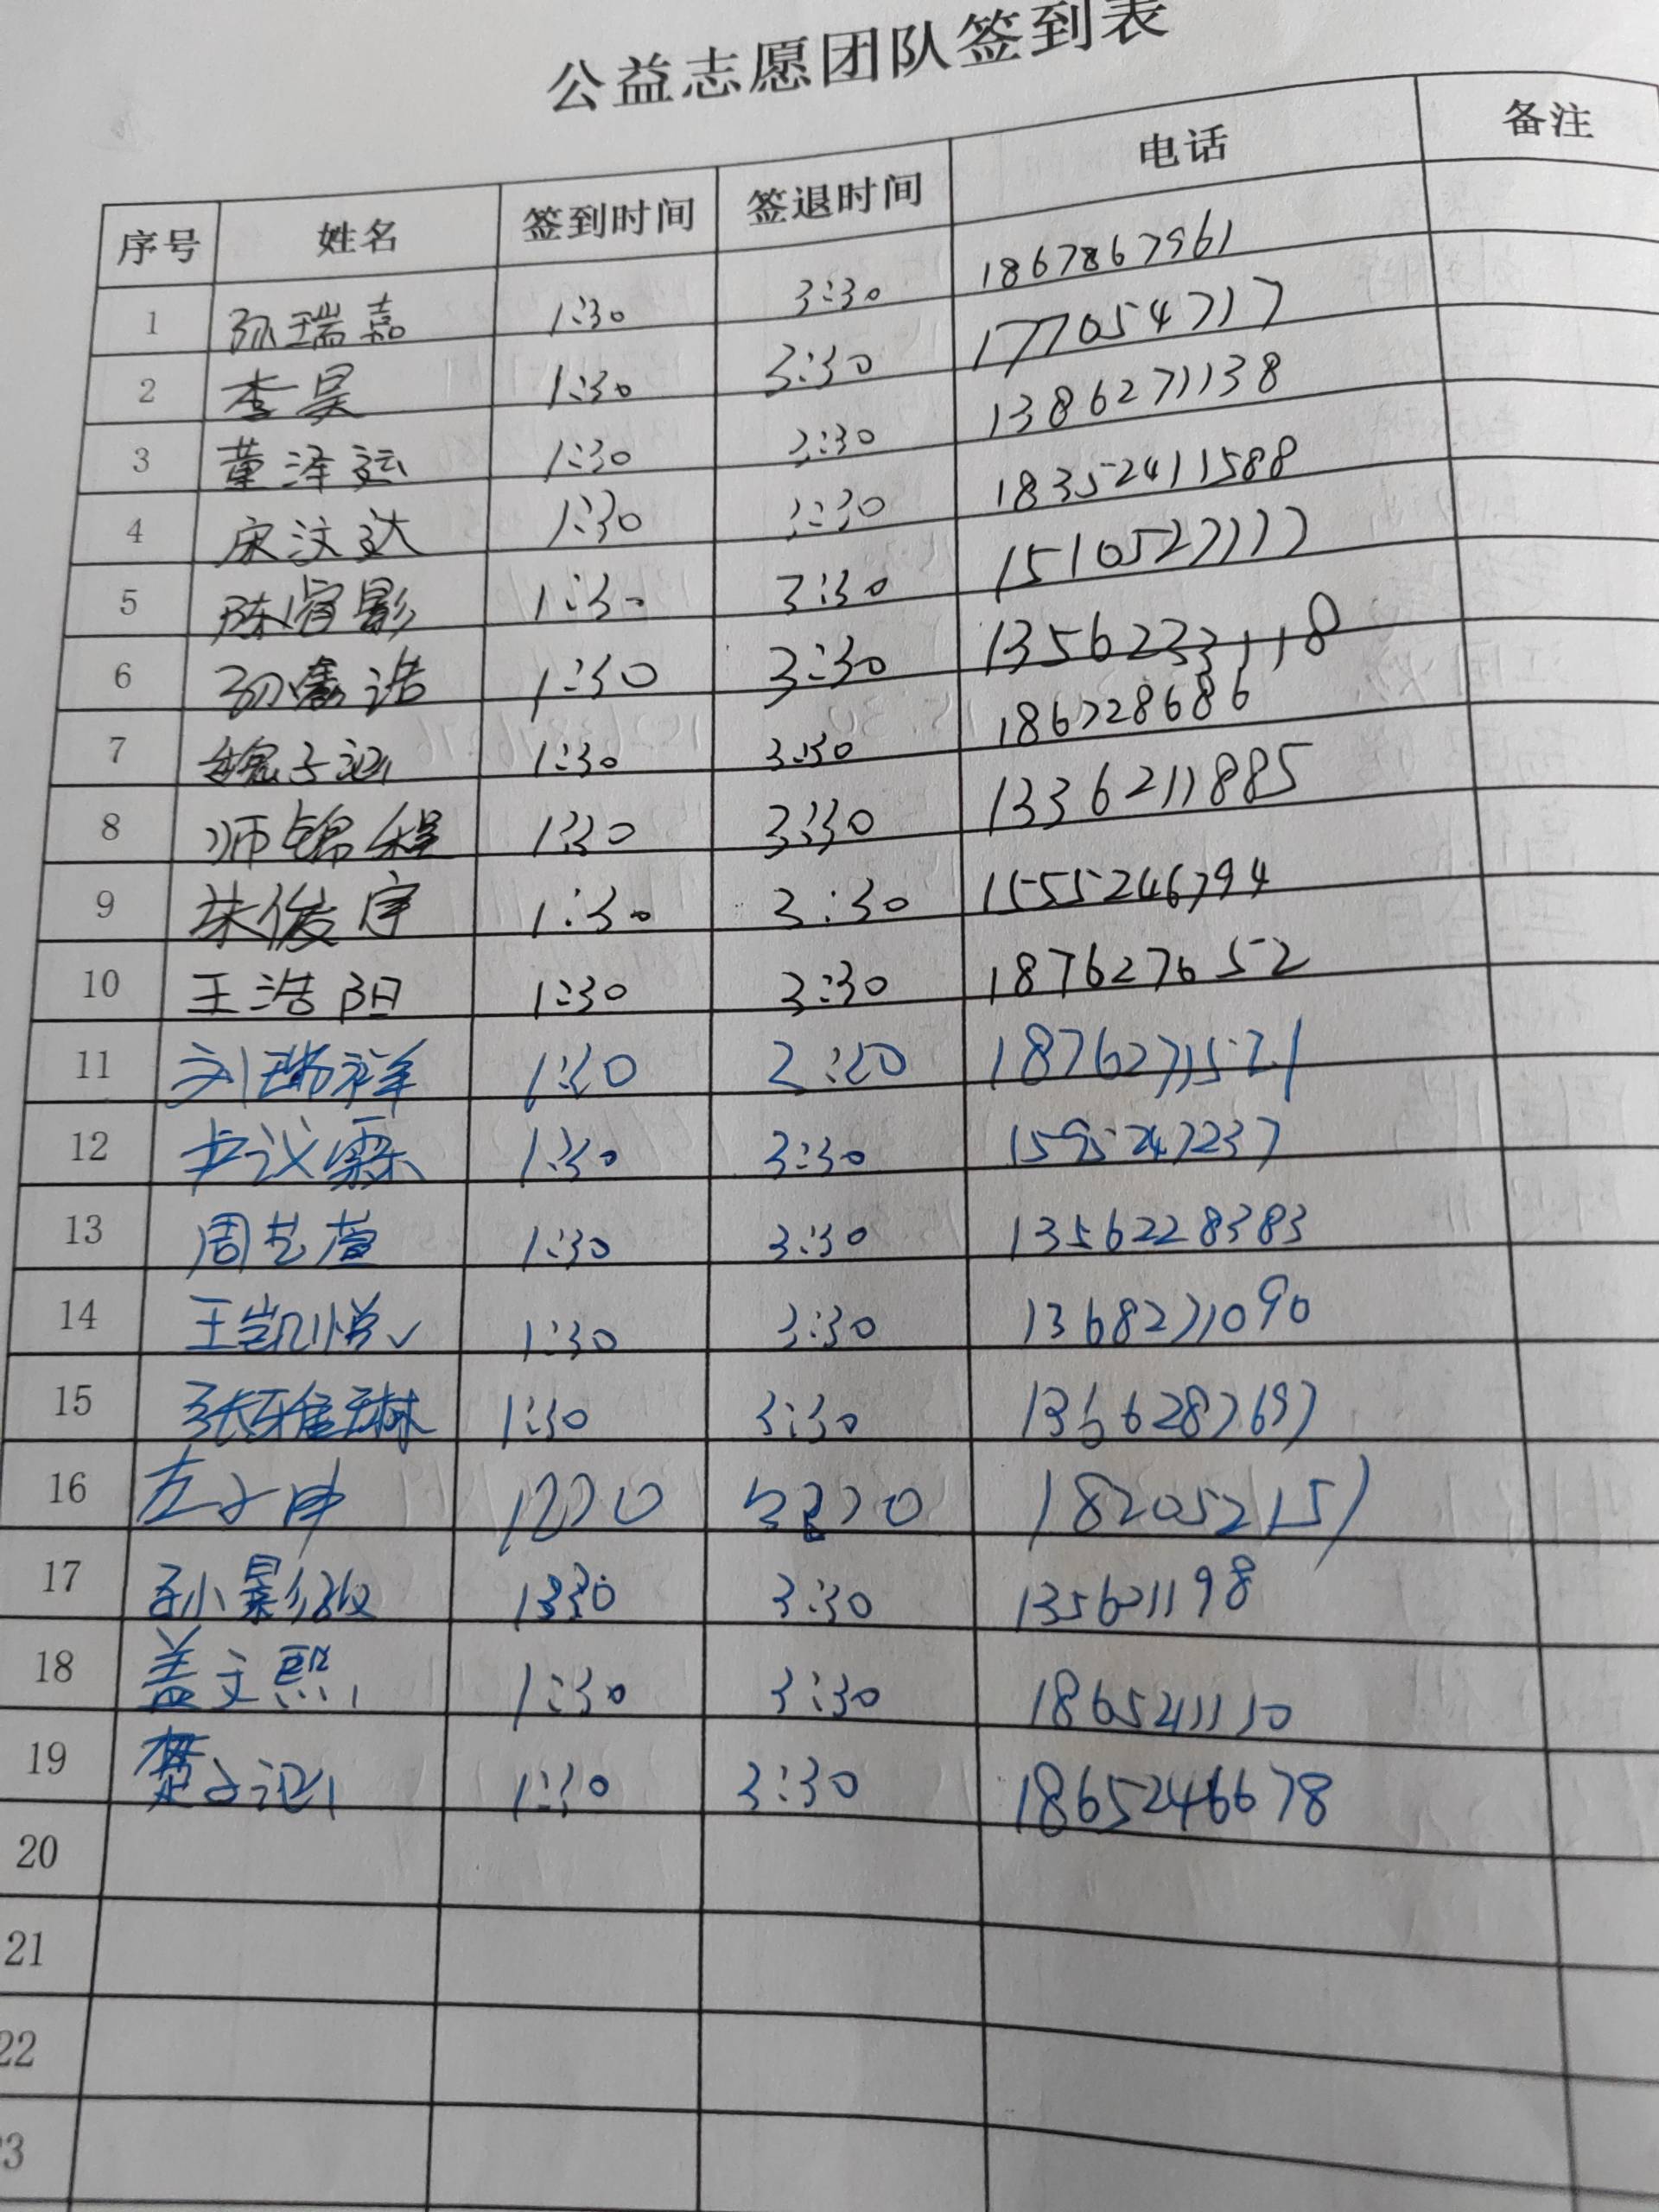 公益志愿团队签到表
序号 姓名 签到时间 签退时间 电话 备注
1 孙瑞嘉 1:30 3:30 1867867961
2 李昊 1:30 3:30 177054717
3 董泽运 1:30 3:30 1386271138
4 宋汶达 1:30 3:30 18352411588
5 1:30 3:30 1510527177
6 孙鑫诺 1:30 3:30 13562233118
7 魏子涵 1:30 3:30 186728686
8 师锦程 1:30 3:30 1336211885
9 朱俊宇 1:30 3:30 1555246794
10 王浩阳 1:30 3:30 187627652
11 刘瑞祥 1:30 3:30 1876271521
12 1:30 3:30 1595247237
13 周艺萱 1:30 3:30 1356228383
14 王凯悦 1:30 3:30 1368271090
15 张雅琳 1:30 3:30 1366287697
16 182052151
17 1:30 3:30
18 盖文熙 1:30 3:30 186521110
19 楚子涵 1:30 3:30 1865246678
20
21
22